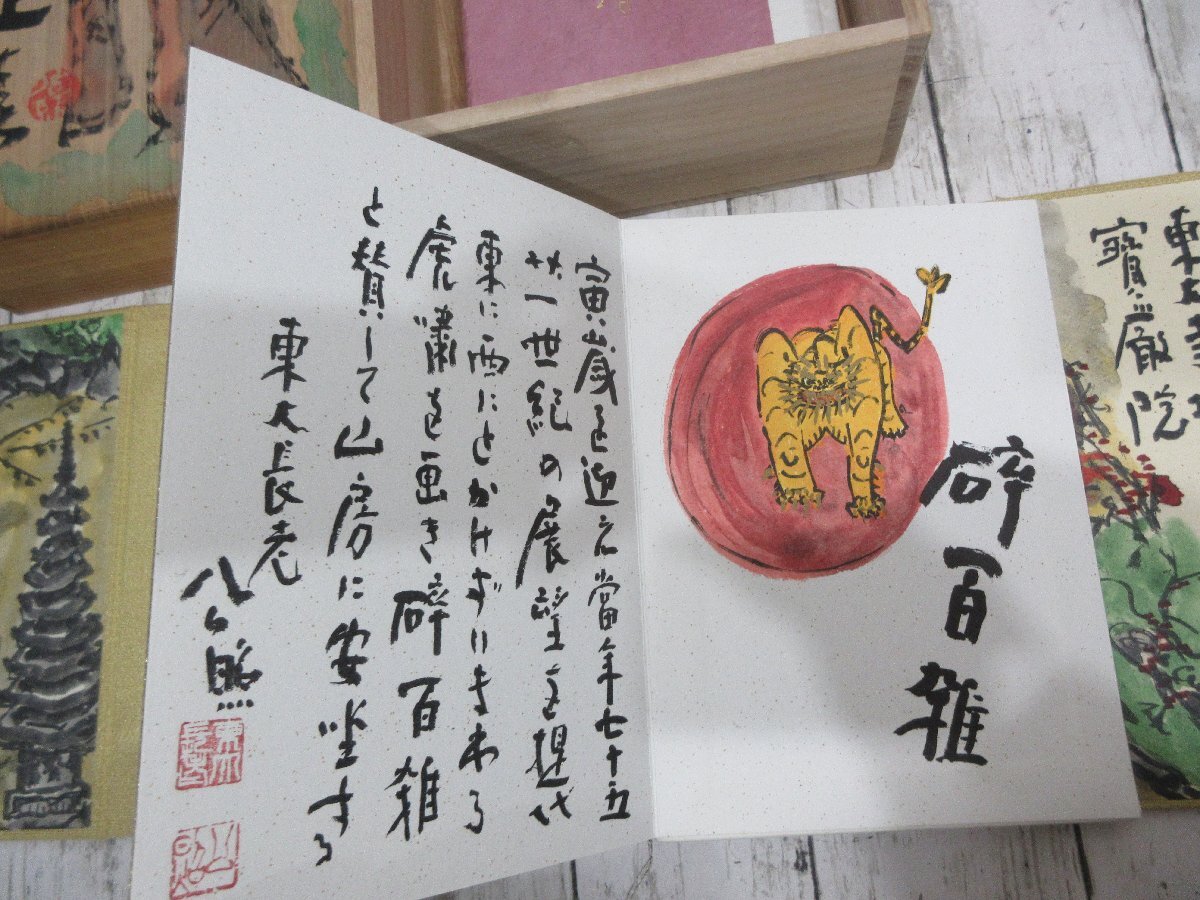 東大寺
寶嚴院
碎百雑
寅歳を迎え當年七十五
廿一世紀の展望を
東に西にとかけずりまわる
虎嘯を画き碎百雑
と賛して山房に安坐する
東大長老
公照
東大長老